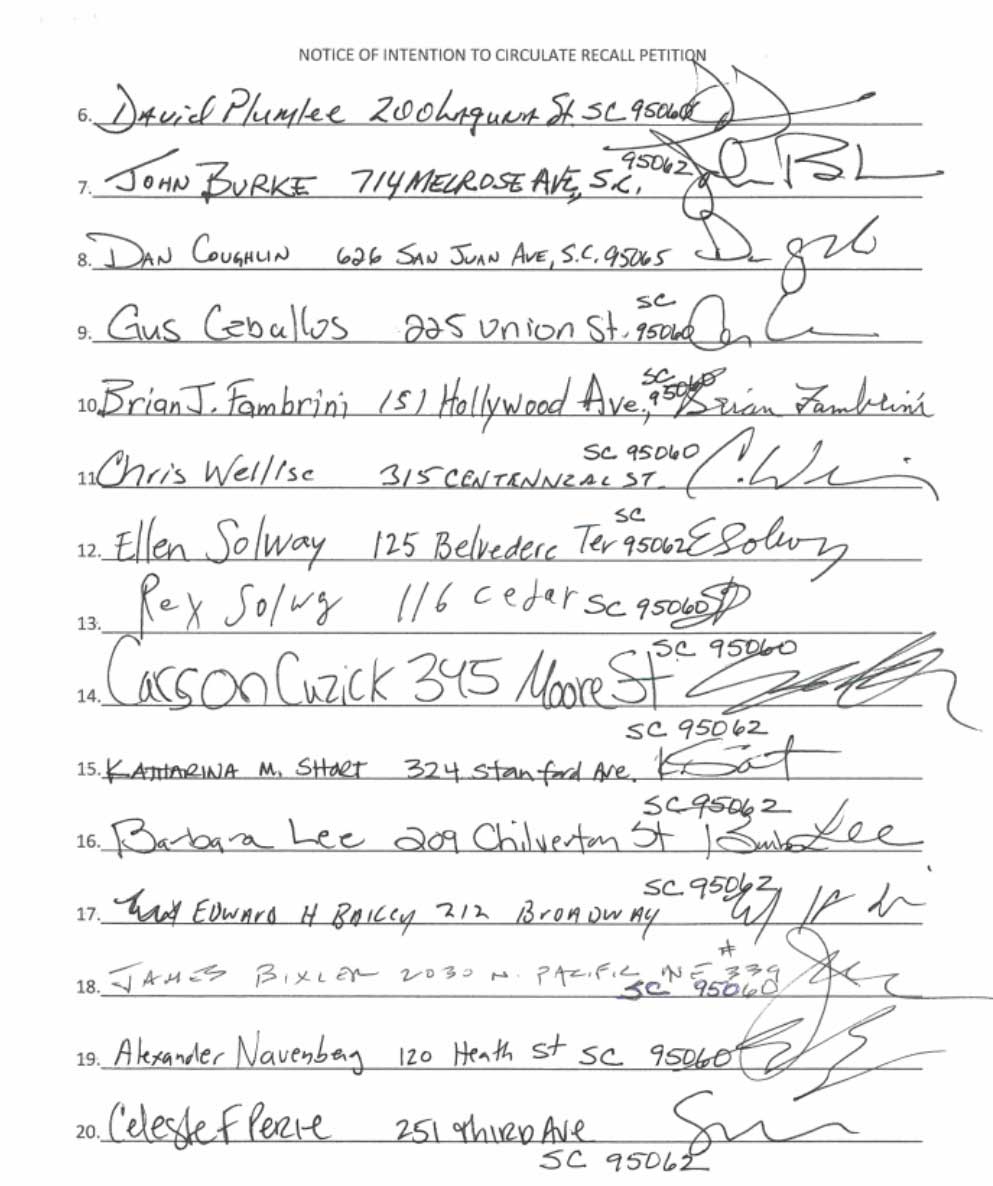 NOTICE OF INTENTION TO CIRCULATE RECALL PETITION
6. David Plumlee 200 Laguna St. SC 95060
7. JOHN BURKE 714 MELROSE AVE, S.C. 95062
8. DAN COUGHLIN 626 SAN JUAN AVE, S.C. 95065
9. Gus Ceballos 225 Union St. SC 95060
10. Brian J. Fambrini 151 Hollywood Ave., SC 95060 Brian Fambrini
11. Chris Wellise 315 CENTENNIAL ST. SC 95060
12. Ellen Solway 125 Belvedere Ter SC 95062 E Solway
13. Rex Solwy 116 cedar SC 95060
14. Carson Cuzick 345 Moore St SC 95060
15. KATHARINA M. SHORT 324 Stanford Ave. SC 95062
16. Barbara Lee 209 Chilverton St SC 95062 Barbara Lee
17. EDWARD H BAILEY 212 BROADWAY SC 95062
18. JAMES BIXLER 2030 N. PACIFIC AVE #339 SC 95060
19. Alexander Navenberg 120 Heath St SC 95060
20. Celeste F Perie 251 THIRD Ave SC 95062